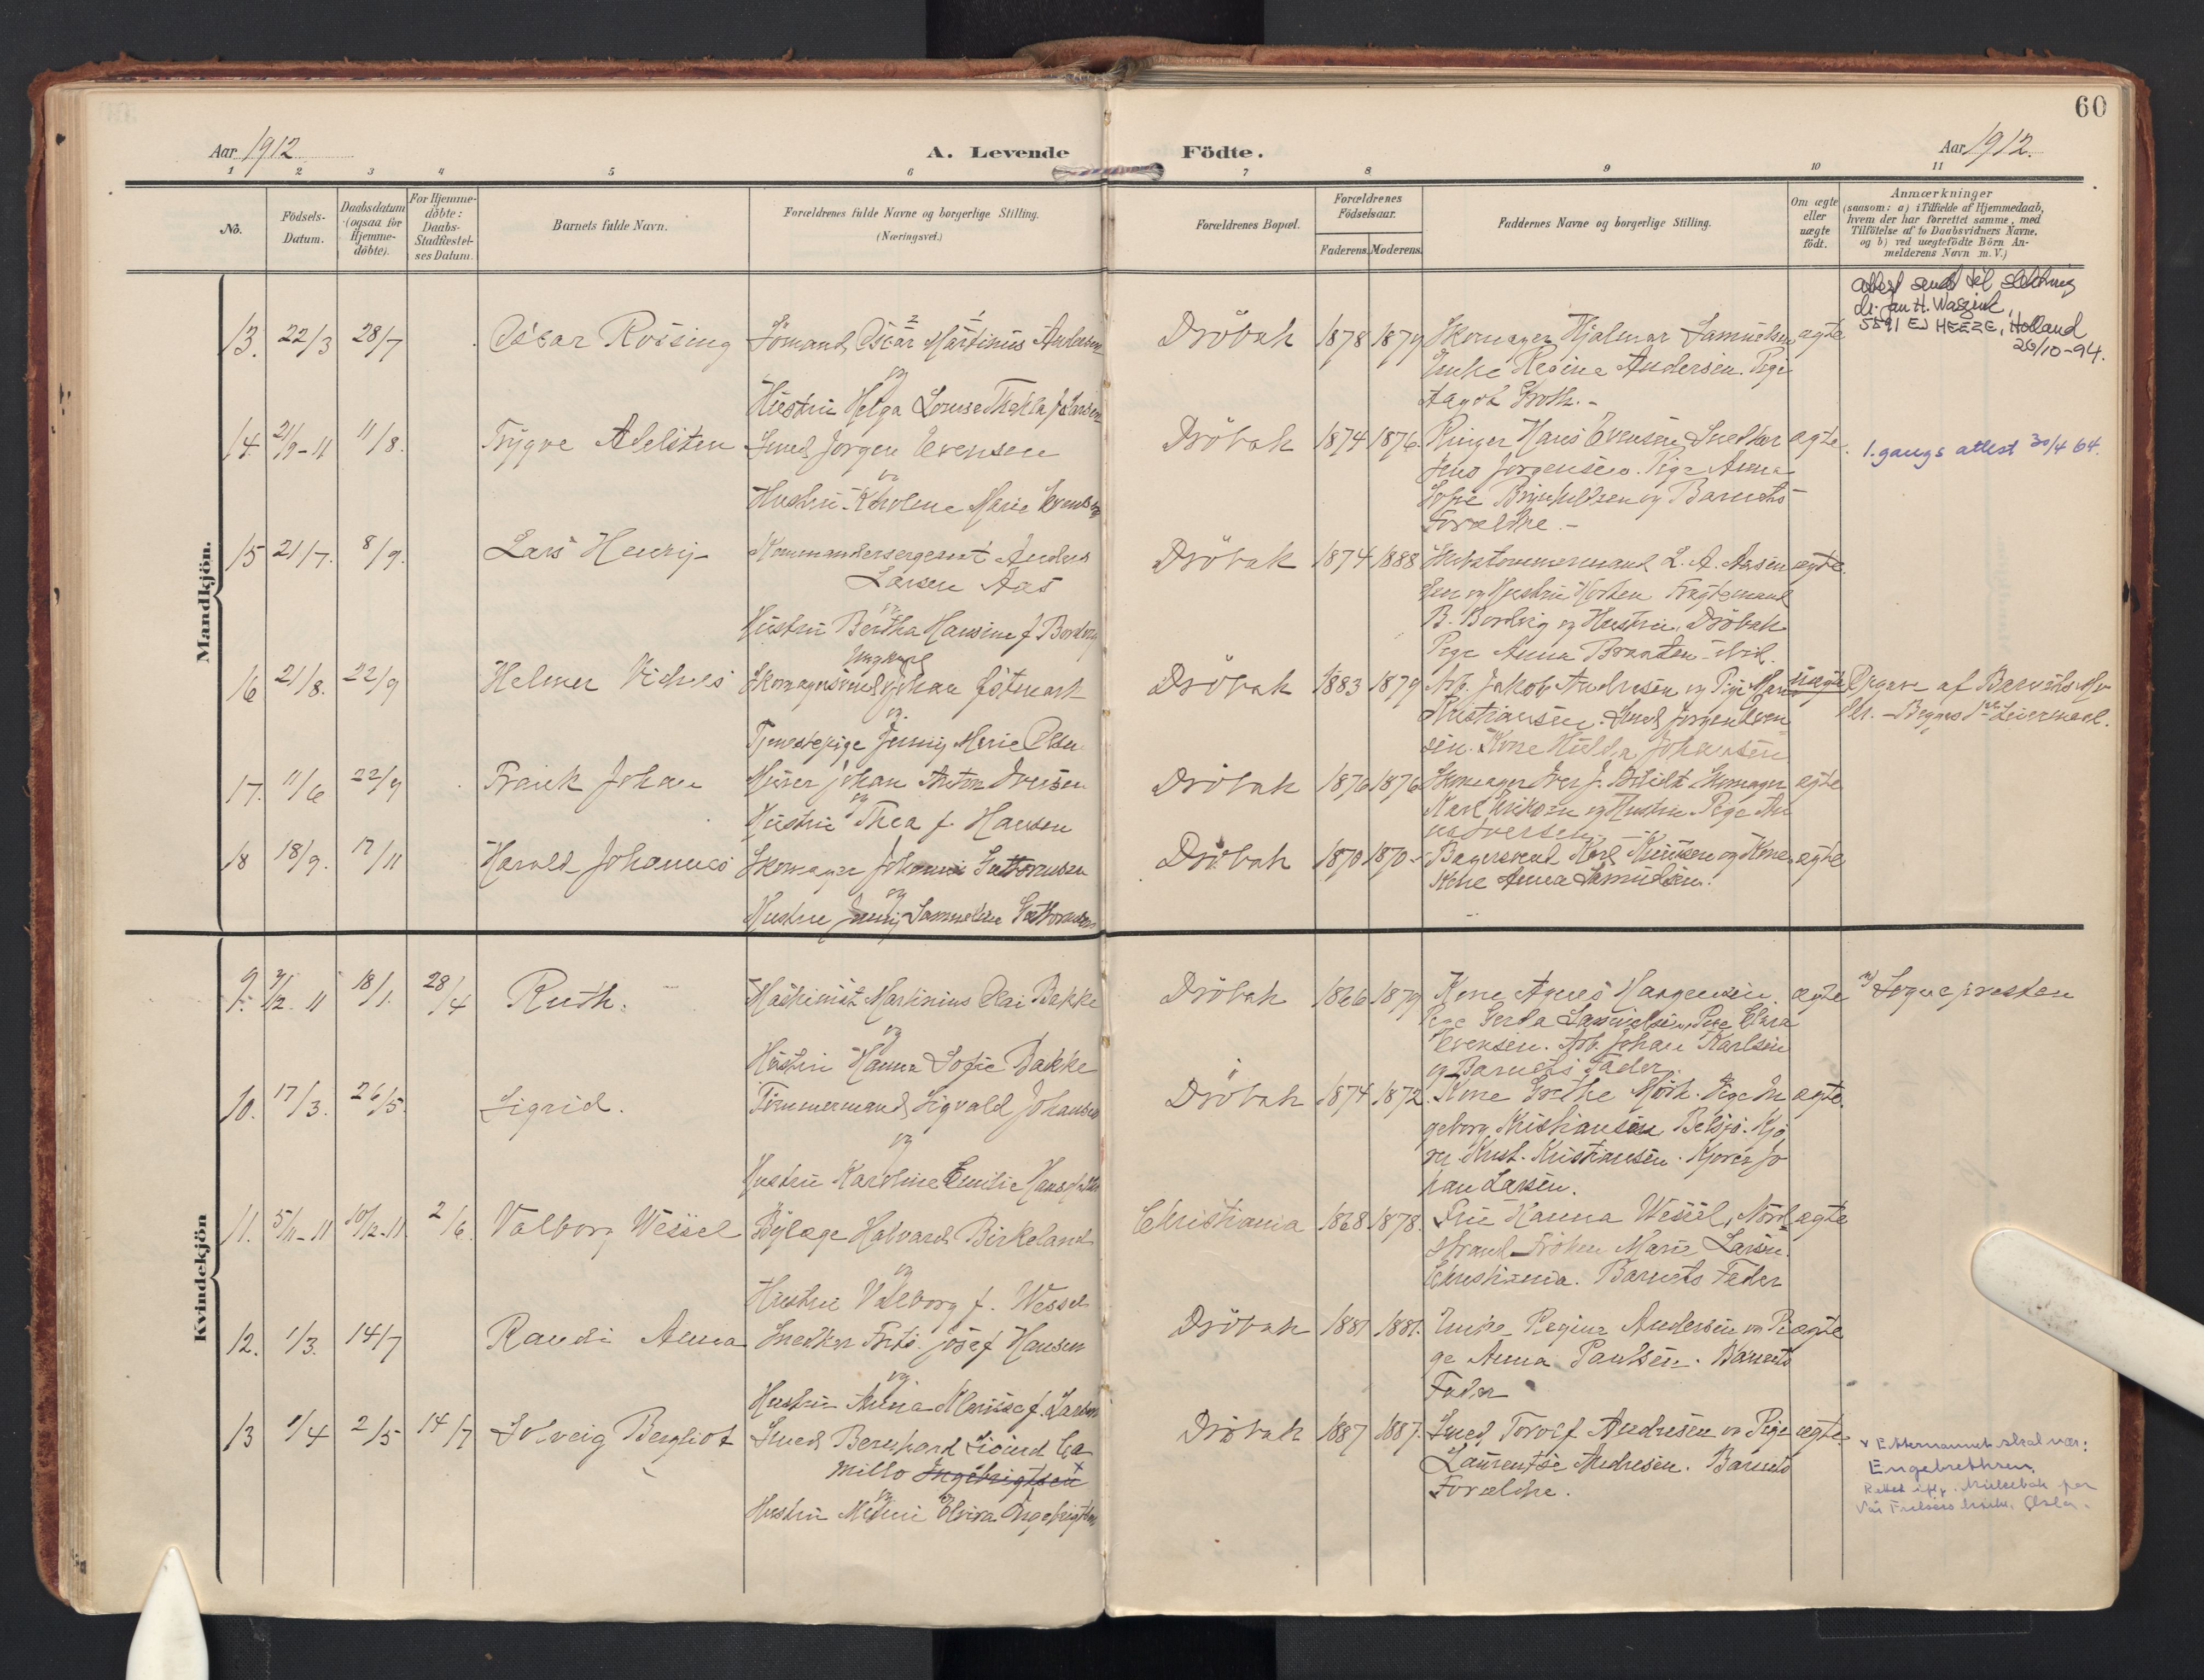 60
Aar 1912
A. Levende Födte.
Aar 1912.
1 2 3 4 5 6 7 8 9 10 11
No.
Födsels-
Datum.
Daabsdatum
(ogsaa for
Hjemme-
döbte).
For Hjemme-
döbte:
Daabs-
Stadfæstel-
ses Datum.
Barnets fulde Navn.
Forældrenes fulde Navne og borgerlige Stilling.
(Næringsvei.)
Forældrenes Bopæl.
Forældrenes
Födselsaar.
Faderens. Moderens.
Faddernes Navne og borgerlige Stilling.
Om ægte
eller
uægte
födt.
Anmærkninger
(saasom: a) i Tilfælde af Hjemmedaab,
hvem der har forrettet samme, med
Tilföielse af to Daabsvidners Navne,
og b) ved uægtefödte Börn An-
melderens Navn m. V.)
Mandkjön.
13. 22/3 28/7 Oscar Rossing
Sömand Oscar Martinus Andersen
og
Hustru Helga Louise Thekla f. Larsen
Dröbak 1878 1879
Skomager Hjalmar Samuelsen
Enke Regine Andersen. Pige
Aagot Groth. -
ægte
attest sendt til slektning
dr. Jan H. Waszink,
5591 EJ HEEZE, Holland
26/10-94.
14 21/9-11 11/8. Trygve Adelsten
Smed Jörgen Evensen
og
Hustru Karoline Marie Evensen
Dröbak 1874 1876.
Ringer Hans Evensen, Snedker
Jens Jörgensen. Pige Anna
Sofie Brynhildsen og Barnets
Forældre. -
ægte.
1. gangs attest 30/4 64.
15 21/7. 8/9. Lars Henry
Kommandersergeant Anders
Larsen Aas
og
Hustru Bertha Hansine f. Bordvig
Dröbak 1874 1888
L. A. Aasen
og Hustru Horten Fragtemand
B. Bordvig og Hustru, Dröbak
Pige Anna Braaten
ægte.
16 21/8. 22/9 Helmer
Ungkarl
Skomagersvend Johan
og
Tjenestepige Jenny Marie Olsen
Dröbak 1883 1879
Arb. Jakob Andresen og Pige
Kristiansen. Smed Jörgen Even
sen. Kone Hulda Johansen
uægte
Opgave af Barnets Mo
der. - Begges 1ste Leiermaal.
17. 11/6 22/9 Frank Johan
Murer Johan Anton Iversen
og
Hustru Thea f. Hansen
Dröbak 1876 1876
Skomager Iver J. Skomager
Karl Eriksen og Hustru. Pige An
na Iversen.
ægte
18 18/9. 17/11 Harald Johannes
Skomager Johannes Guttormsen
og
Hustru Jenny Samueline Guttormsen
Dröbak 1870 1870
Bagersvend Karl og Kone
Kone Anna Samuelsen.
ægte
Kvindekjön
9. 7/12-11 18/1. 28/4 Ruth.
Maskinist Martinius Olai Bakke
og
Hustru Hanna Sofie Bakke
Dröbak 1866 1879
Kone Agnes Haagensen.
Pige Gerda Samuelsen, Pige Clara
Evensen. Arb. Johan Karlsen
og Barnets Fader.
ægte
Sognepresten
10. 17/3. 26/5. Sigrid.
Tömmermand Sigvald Johansen
og
Hustru Karoline Emilie
Dröbak 1874 1872.
Kone Grethe Mörk. Pige In
geborg Kristiansen Belsjö. Kjö
rer Krist. Kristiansen. Kjörer Jo
han Larsen.
ægte.
11. 5/11-11 10/12-11. 2/6. Valborg Wessel
Bylæge Halvard Birkeland
og
Hustru Valborg f. Wessel
Christiania 1868 1878.
Fru Hanna Wessel, Nord
strand Fröken Marie Larsen
Christiania. Barnets Fader
ægte
12. 1/3. 14/7 Randi Anna
Snedker Frits Josef Hansen
og
Hustru Anna f. Larsen
Dröbak 1881 1881.
Enke Regine Andersen og Pi
ge Anna Paulsen. Barnets
Fader
ægte
13 1/4 2/5 14/7 Solveig Bergliot
Smed Bernhard Sigurd Ca
millo Ingebrigtsen x
og
Hustru Elvira Ingebrigtsen
Dröbak 1887 1887.
Smed Torolf Andresen og Pige
Laurentse Andresen. Barnets
Forældre.
ægte.
x Etternavnet skal være:
Engebrethsen.
Rettet iflg. kirkebok for
Vår Frelsers kirke, Oslo.